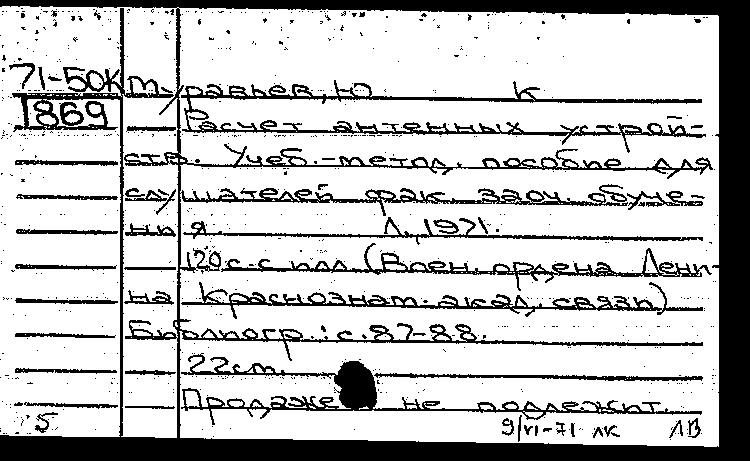 71-50К Муравьев, Ю К
1869 Расчет антенных устрой-
ств. Учеб.-метод. пособие для
слушателей фак. заоч. обуче-
ния. Л., 1971.
120 с. с илл. (Воен. ордена Лени-
на Краснознам. акад. связи)
Библиогр.: с. 87-88.
22 см.
Продаже не подлежит.
5 9/VI-71 ЛК ЛВ